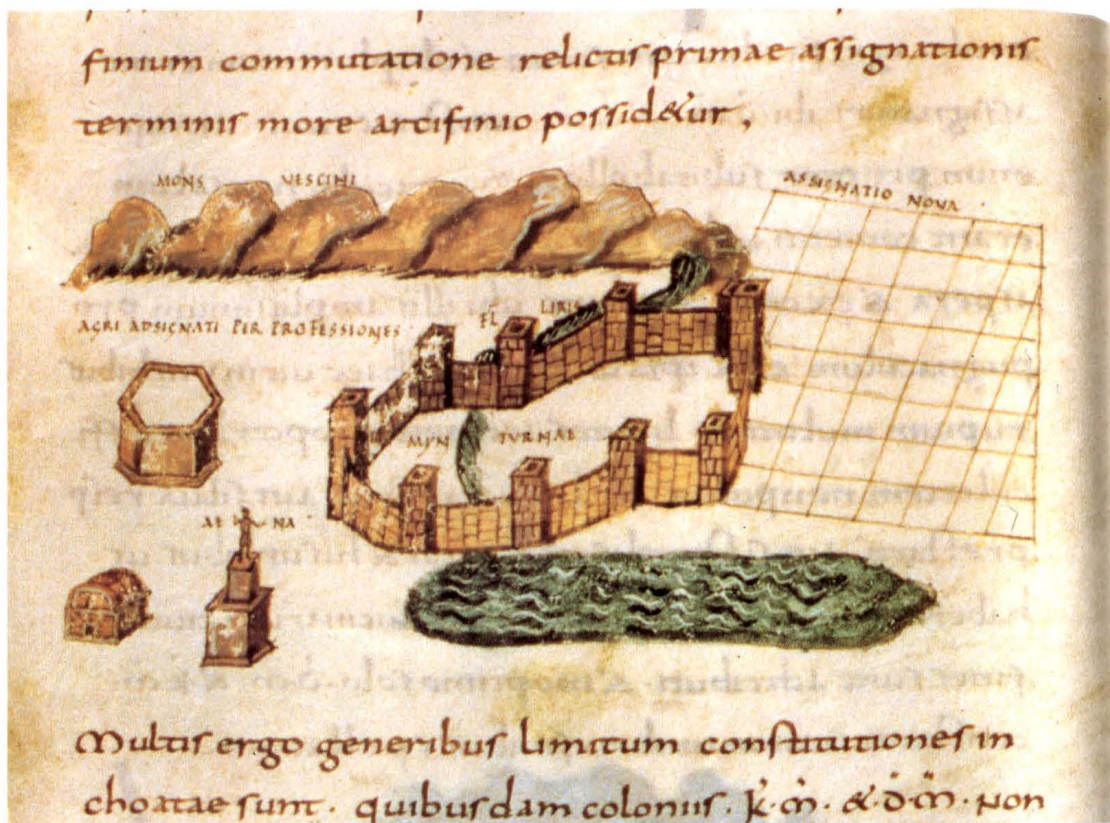 finium commutatione relictis primae assignationis
terminis more arcifinio possid&ur,
MONS VESCINI
ASSIGNATIO NOVA
FL LIRIS
AGRI ADSIGNATI PER PROFESSIONES
MYN TURNAE
AE NA
Multis ergo generibus limitum constitutiones in
choatae sunt. quibusdam coloniis. k. m. & d. m. Non